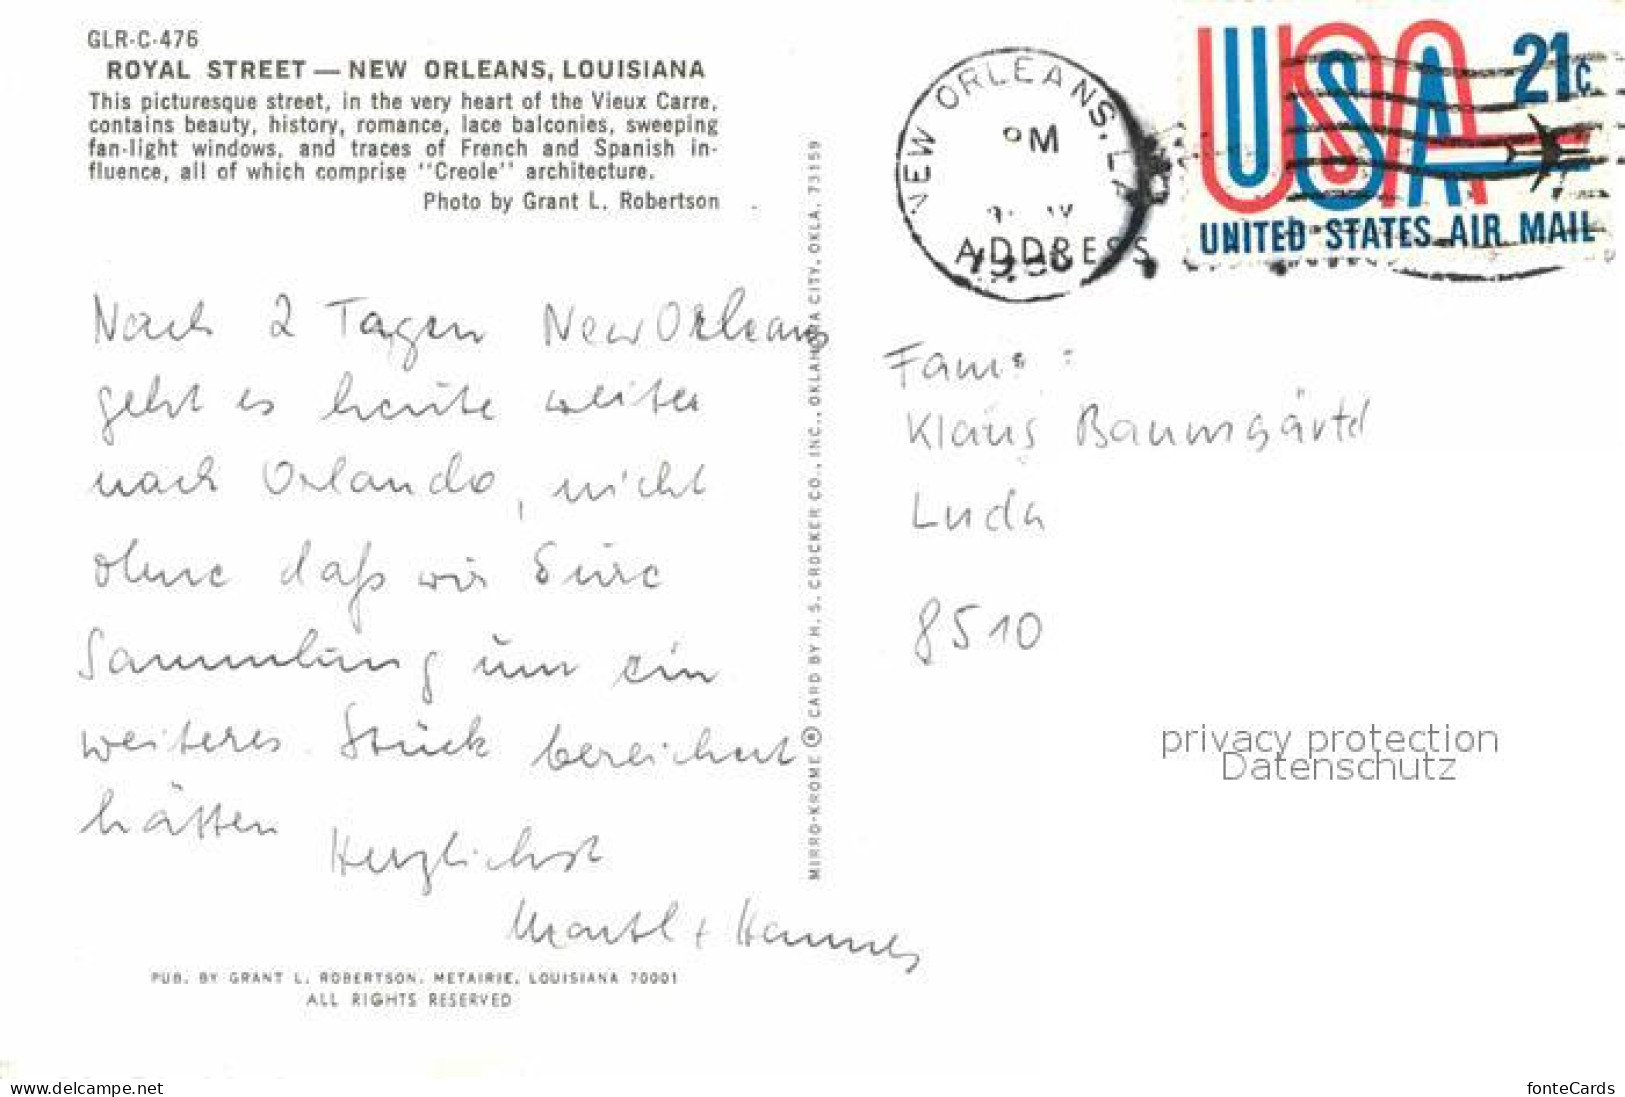 GLR-C-476
ROYAL STREET — NEW ORLEANS, LOUISIANA
This picturesque street, in the very heart of the Vieux Carre,
contains beauty, history, romance, lace balconies, sweeping
fan-light windows, and traces of French and Spanish in-
fluence, all of which comprise "Creole" architecture.
Photo by Grant L. Robertson
Nach 2 Tagen New Orleans
geht es heute weiter
nach Orlando, nicht
ohne daß wir Eure
Sammlung um ein
weiteres Stück bereichert
hätten
Herzlichst
+ Hannes
PUB. BY GRANT L. ROBERTSON, METAIRIE, LOUISIANA 70001
ALL RIGHTS RESERVED
MIRRO-KROME ® CARD BY H. S. CROCKER CO., INC., OKLAHOMA CITY, OKLA. 73159
NEW ORLEANS, LA
PM
ADDRESS
USA 21c
UNITED STATES AIR MAIL
Fam. :
Klaus Baumgärtel
8510
privacy protection
Datenschutz
www.delcampe.net
fonteCards